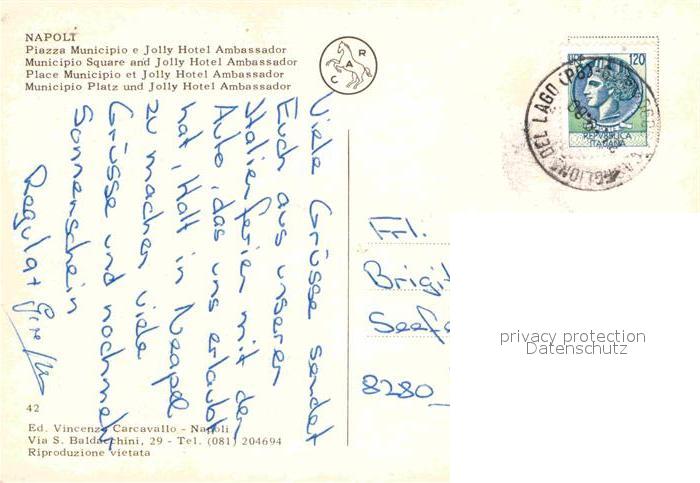 NAPOLI
Piazza Municipio e Jolly Hotel Ambassador
Municipio Square and Jolly Hotel Ambassador
Place Municipio et Jolly Hotel Ambassador
Municipio Platz und Jolly Hotel Ambassador
C A R
LIRE 120
REPVBBLICA
ITALIANA
CASTIGLIONE DEL LAGO (PG)
Viele Grüsse sendet
Euch aus unseren
Italienferien mit dem
Auto, das uns erlaubt
hat, Halt in Neapel
zu machen viele
Grüsse und nochmehr
Sonnenschein
Regula +
Frl.
Brigit
Seefe
8280
privacy protection
Datenschutz
42
Ed. Vincenzo Carcavallo - Napoli
Via S. Baldacchini, 29 - Tel. (081) 204694
Riproduzione vietata